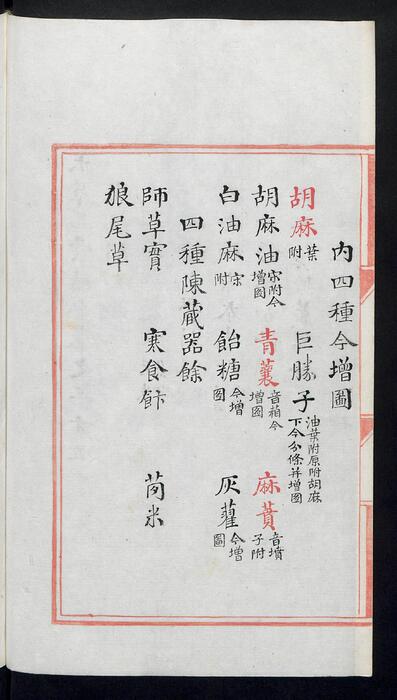 內四種今增圖
胡麻 葉附 巨勝子 油葉附原附胡麻下今分條并增圖
胡麻油 宋附今增圖 青蘘 音箱今增圖 麻蕡 音墳子附
白油麻 宋附 飴糖 今增圖 灰藋 今增圖
四種陳藏器餘
師草實 寒食飰 茵米
狼尾草